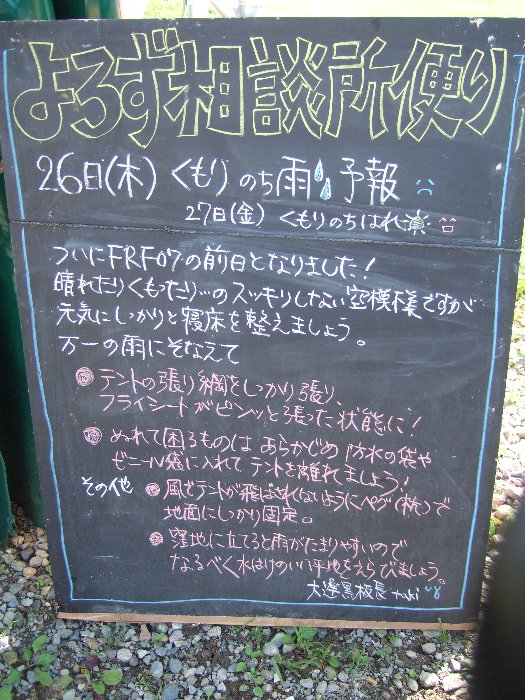 よろず相談所便り
26日(木) くもり のち 雨 予報
27日(金) くもりのちはれ
ついにFRF07の前日となりました!
晴れたりくもったり…のスッキリしない空模様ですが
元気にしっかりと寝床を整えましょう。
万一の雨にそなえて
テントの張り綱をしっかり張り、
フライシートがピンッと張った状態に!
ぬれて困るものは あらかじめ 防水の袋や
ビニール袋に入れて テントを離れましょう!
その他
風でテントが飛ばされないようにペグ(杭)で
地面にしっかり固定。
窪地に立てると雨がたまりやすいので
なるべく水はけのいい平地をえらびましょう。
黒板長